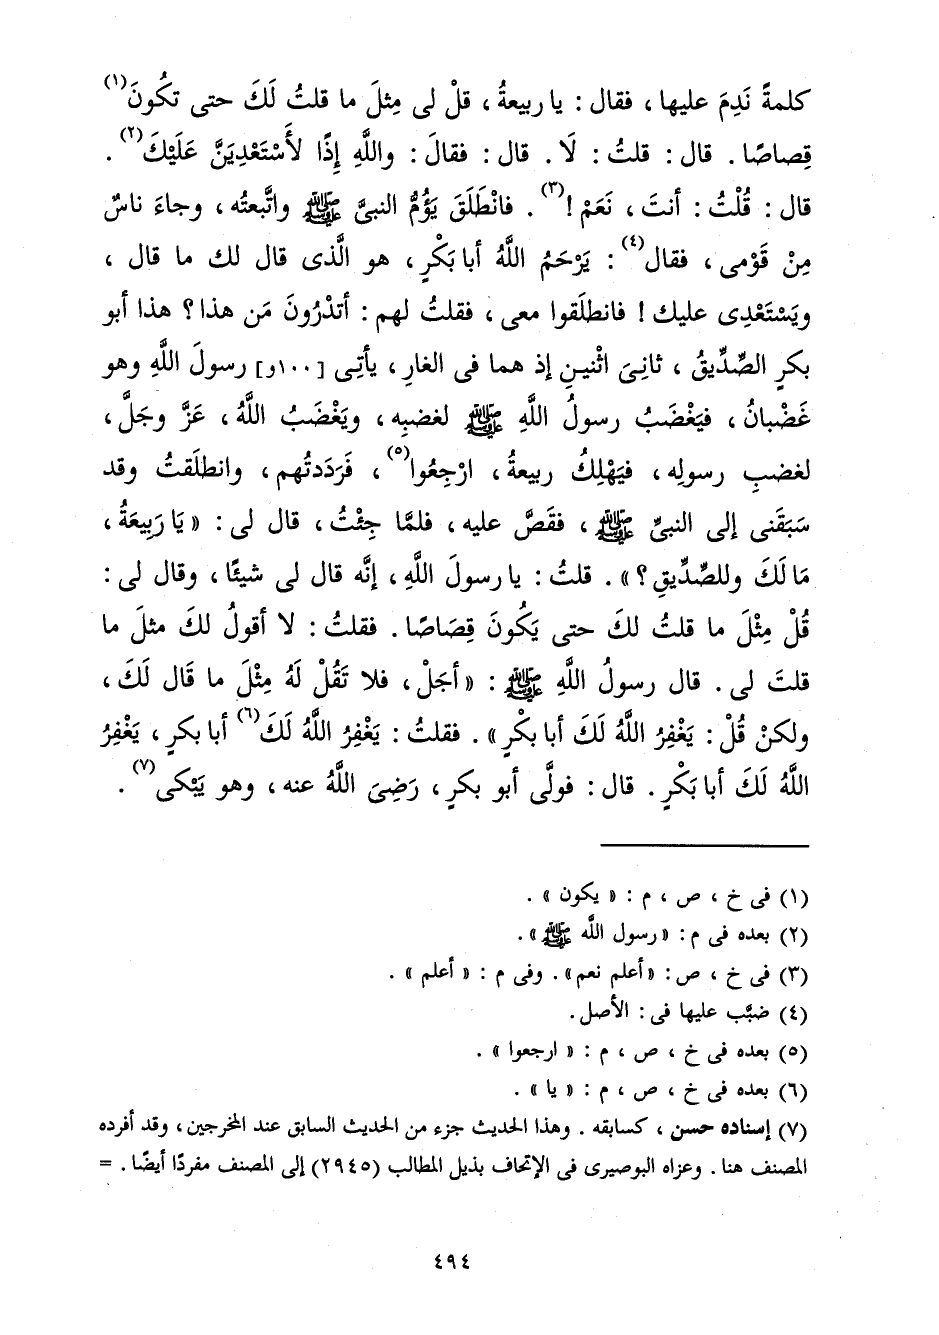 كلمةً نَدِمَ عليها ، فقال : يا ربيعةُ ، قلْ لى مِثلَ ما قلتُ لَكَ حتى تكُونَ(١)
قِصاصًا . قال : قلتُ : لَا . قال : فقالَ : واللَّهِ إِذًا لأَسْتَعْدِيَنَّ عَلَيْكَ(٢) .
قال : قُلْتُ : أنتَ ، نَعَمْ !(٣) . فانْطَلَقَ يَؤُمُّ النبىَّ ﷺ واتَّبعتُه ، وجاءَ ناسٌ
مِنْ قَوْمى ، فقال(٤) : يَرْحَمُ اللَّهُ أبا بَكْرٍ ، هو الَّذى قال لك ما قال ،
ويَسْتَعْدِى عليك ! فانطلَقوا معى ، فقلتُ لهم : أتدْرُونَ مَن هذا ؟ هذا أبو
بكرٍ الصِّدِّيقُ ، ثانِىَ اثْنينِ إذ هما فى الغارِ ، يأتِى [١٠٠و] رسولَ اللَّهِ وهو
غَضْبانُ ، فيَغْضَبُ رسولُ اللَّهِ ﷺ لغضبِه ، ويَغْضَبُ اللَّهُ ، عَزَّ وجَلَّ ،
لغضبِ رسولِه ، فيَهْلِكُ ربيعةُ ، ارْجِعُوا(٥) ، فَرَدَدتُهم ، وانطلَقتُ وقد
سَبَقَنى إلى النبىِّ ﷺ ، فقَصَّ عليه ، فلمَّا جِئْتُ ، قال لى : « يَا رَبِيعَةُ ،
مَا لَكَ وللصِّدِّيقِ ؟ » . قلتُ : يا رسولَ اللَّهِ ، إنَّه قال لى شيئًا ، وقال لى :
قُلْ مِثْلَ ما قلتُ لكَ حتى يَكُونَ قِصَاصًا . فقلتُ : لا أقولُ لكَ مثلَ ما
قلتَ لى . قال رسولُ اللَّهِ ﷺ : « أجَلْ ، فلا تَقُلْ لَهُ مِثْلَ ما قَال لَكَ ،
ولكنْ قُلْ : يَغْفِرُ اللَّهُ لَكَ أبا بكْرٍ » . فقلتُ : يَغْفِرُ اللَّهُ لَكَ(٦) أبا بكرٍ ، يَغْفِرُ
اللَّهُ لَكَ أبا بَكْرٍ . قال : فولَّى أبو بكرٍ ، رَضِىَ اللَّهُ عنه ، وهو يَبْكى(٧) .
(١) فى خ ، ص ، م : « يكون » .
(٢) بعده فى م : « رسول اللَّه ﷺ » .
(٣) فى خ ، ص : « أعلم نعم » . وفى م : « أعلم » .
(٤) ضبَّب عليها فى : الأصل .
(٥) بعده فى خ ، ص ، م : « ارجعوا » .
(٦) بعده فى خ ، ص ، م : « يا » .
(٧) إسناده حسن ، كسابقه . وهذا الحديث جزء من الحديث السابق عند المخرجين ، وقد أفرده
المصنف هنا . وعزاه البوصيرى فى الإتحاف بذيل المطالب (٢٩٤٥) إلى المصنف مفردًا أيضًا . =
٤٩٤